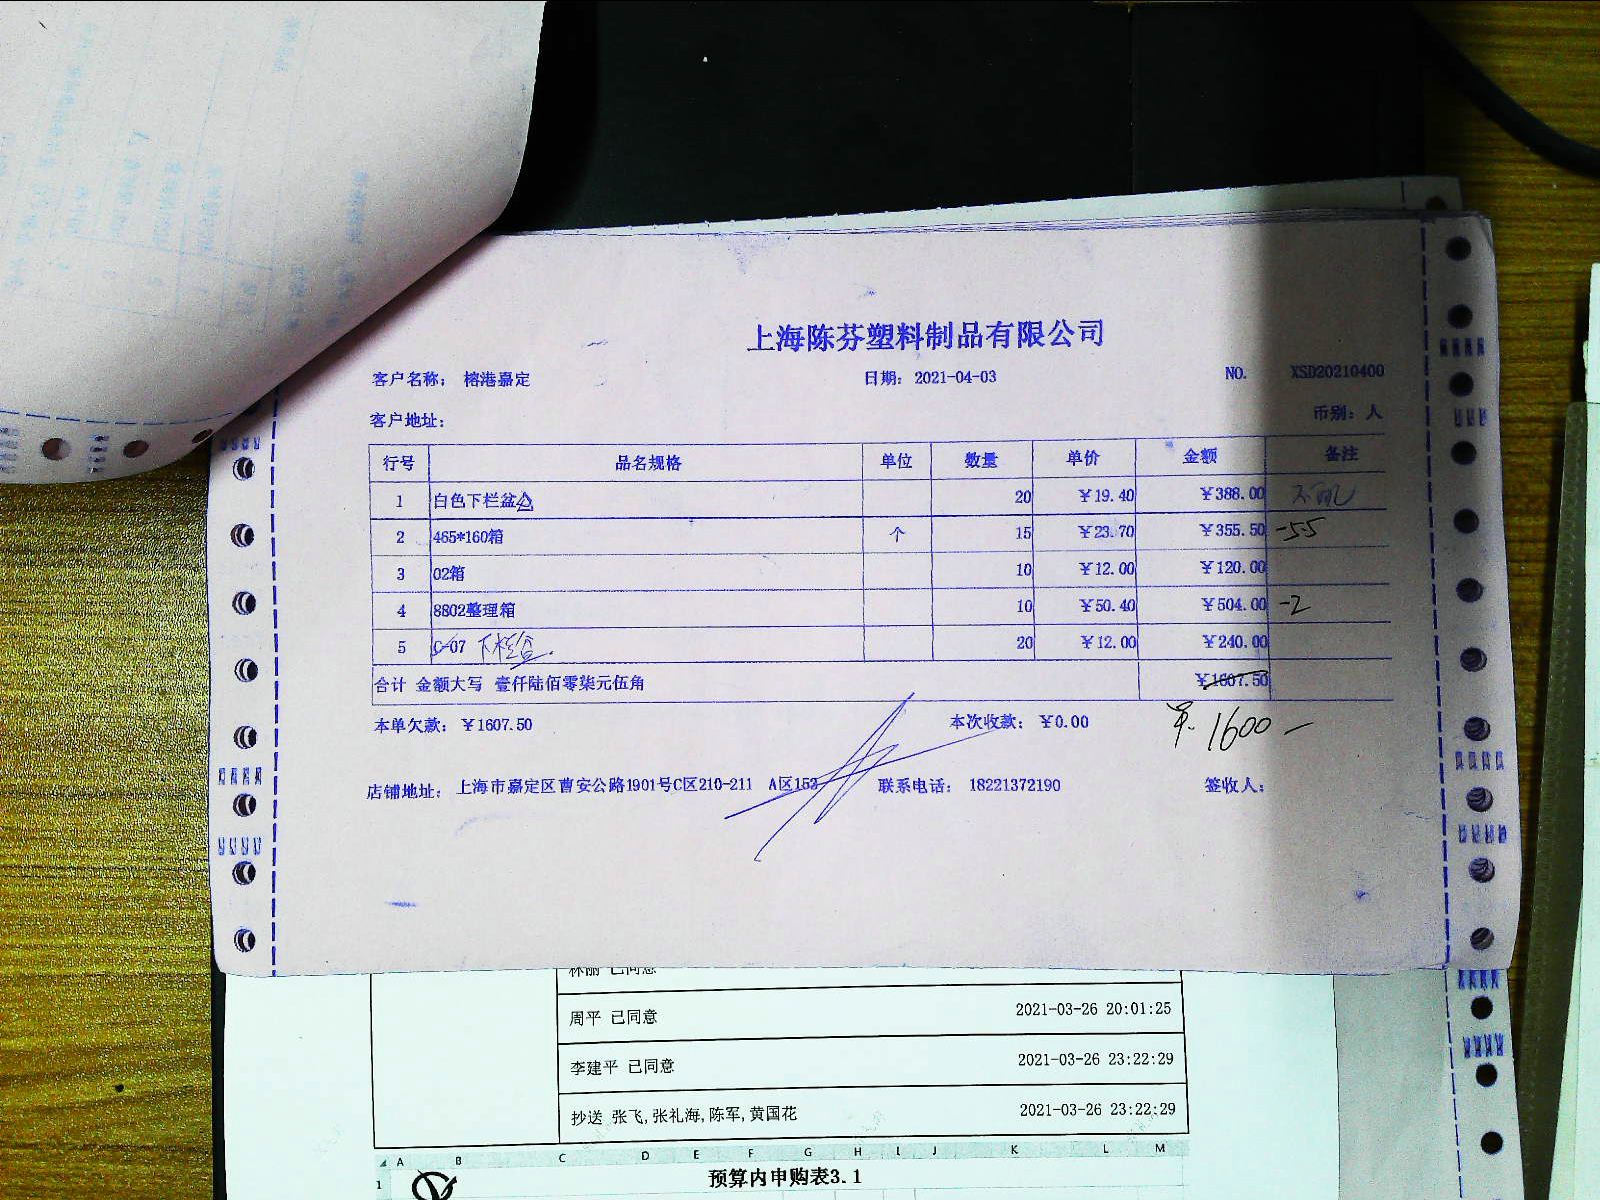 上海陈芬塑料制品有限公司
客户名称: 榕港嘉定 日期: 2021-04-03 NO. XSD20210400
客户地址: 币别: 人
行号 品名规格 单位 数量 单价 金额 备注
1 白色下栏盆 20 ¥19.40 ¥388.00
2 465*160箱 个 15 ¥23.70 ¥355.50 -5.5
3 02箱 10 ¥12.00 ¥120.00
4 8802整理箱 10 ¥50.40 ¥504.00 -2
5 C-07 下栏盒. 20 ¥12.00 ¥240.00
合计 金额大写 壹仟陆佰零柒元伍角 ¥1607.50
本单欠款: ¥1607.50 本次收款: ¥0.00 1600-
店铺地址: 上海市嘉定区曹安公路1901号C区210-211 A区153 联系电话: 18221372190 签收人:
林丽 已同意
周平 已同意 2021-03-26 20:01:25
李建平 已同意 2021-03-26 23:22:29
抄送 张飞,张礼海,陈军,黄国花 2021-03-26 23:22:29
A B C D E F G H I J K L M
1 预算内申购表3.1